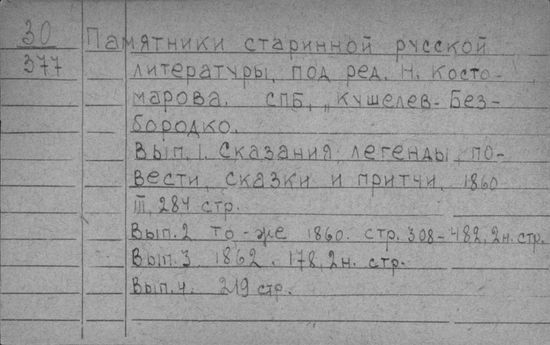 30 Памятники старинной русской
377 литературы, под ред. Н. Косто-
марова. СПБ, Кушелев-Без-
бородко.
Вып. 1. Сказания, легенды, по-
вести, сказки и притчи, 1860
III, 284 стр.
Вып. 2 то-же 1860. стр. 308-482, 2н. стр.
Вып. 3 1862. 178, 2н. стр.
Вып. 4. 219 стр.